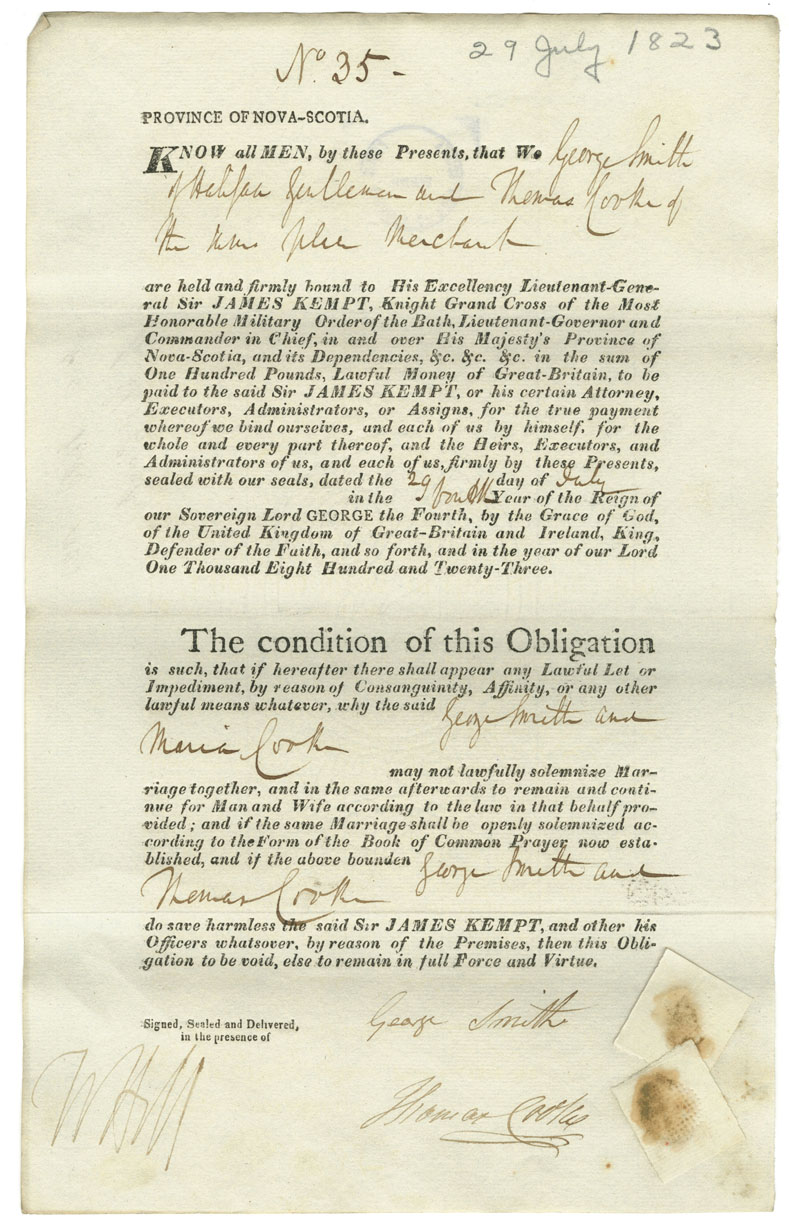 No. 35 -
29 July 1823
PROVINCE OF NOVA-SCOTIA.
KNOW all MEN, by these Presents, that We George Smith
of Halifax Gentleman and Thomas Cooke of
the same place Merchant
are held and firmly bound to His Excellency Lieutenant-Gene-
ral Sir JAMES KEMPT, Knight Grand Cross of the Most
Honorable Military Order of the Bath, Lieutenant-Governor and
Commander in Chief, in and over His Majesty's Province of
Nova-Scotia, and its Dependencies, &c. &c. &c. in the sum of
One Hundred Pounds, Lawful Money of Great-Britain, to be
paid to the said Sir JAMES KEMPT, or his certain Attorney,
Executors, Administrators, or Assigns, for the true payment
whereof we bind ourselves, and each of us by himself, for the
whole and every part thereof, and the Heirs, Executors, and
Administrators of us, and each of us, firmly by these Presents,
sealed with our seals, dated the 29 day of July
in the fourth Year of the Reign of
our Sovereign Lord GEORGE the Fourth, by the Grace of God,
of the United Kingdom of Great-Britain and Ireland, King,
Defender of the Faith, and so forth, and in the year of our Lord
One Thousand Eight Hundred and Twenty-Three.
The condition of this Obligation
is such, that if hereafter there shall appear any Lawful Let or
Impediment, by reason of Consanguinity, Affinity, or any other
lawful means whatever, why the said George Smith and
Maria Cooke
may not lawfully solemnize Mar-
riage together, and in the same afterwards to remain and conti-
nue for Man and Wife according to the law in that behalf pro-
vided; and if the same Marriage shall be openly solemnized ac-
cording to the Form of the Book of Common Prayer now esta-
blished, and if the above bounden George Smith and
Thomas Cooke
do save harmless the said Sir JAMES KEMPT, and other his
Officers whatsover, by reason of the Premises, then this Obli-
gation to be void, else to remain in full Force and Virtue.
Signed, Sealed and Delivered,
in the presence of
George Smith
W Hill
Thomas Cooke